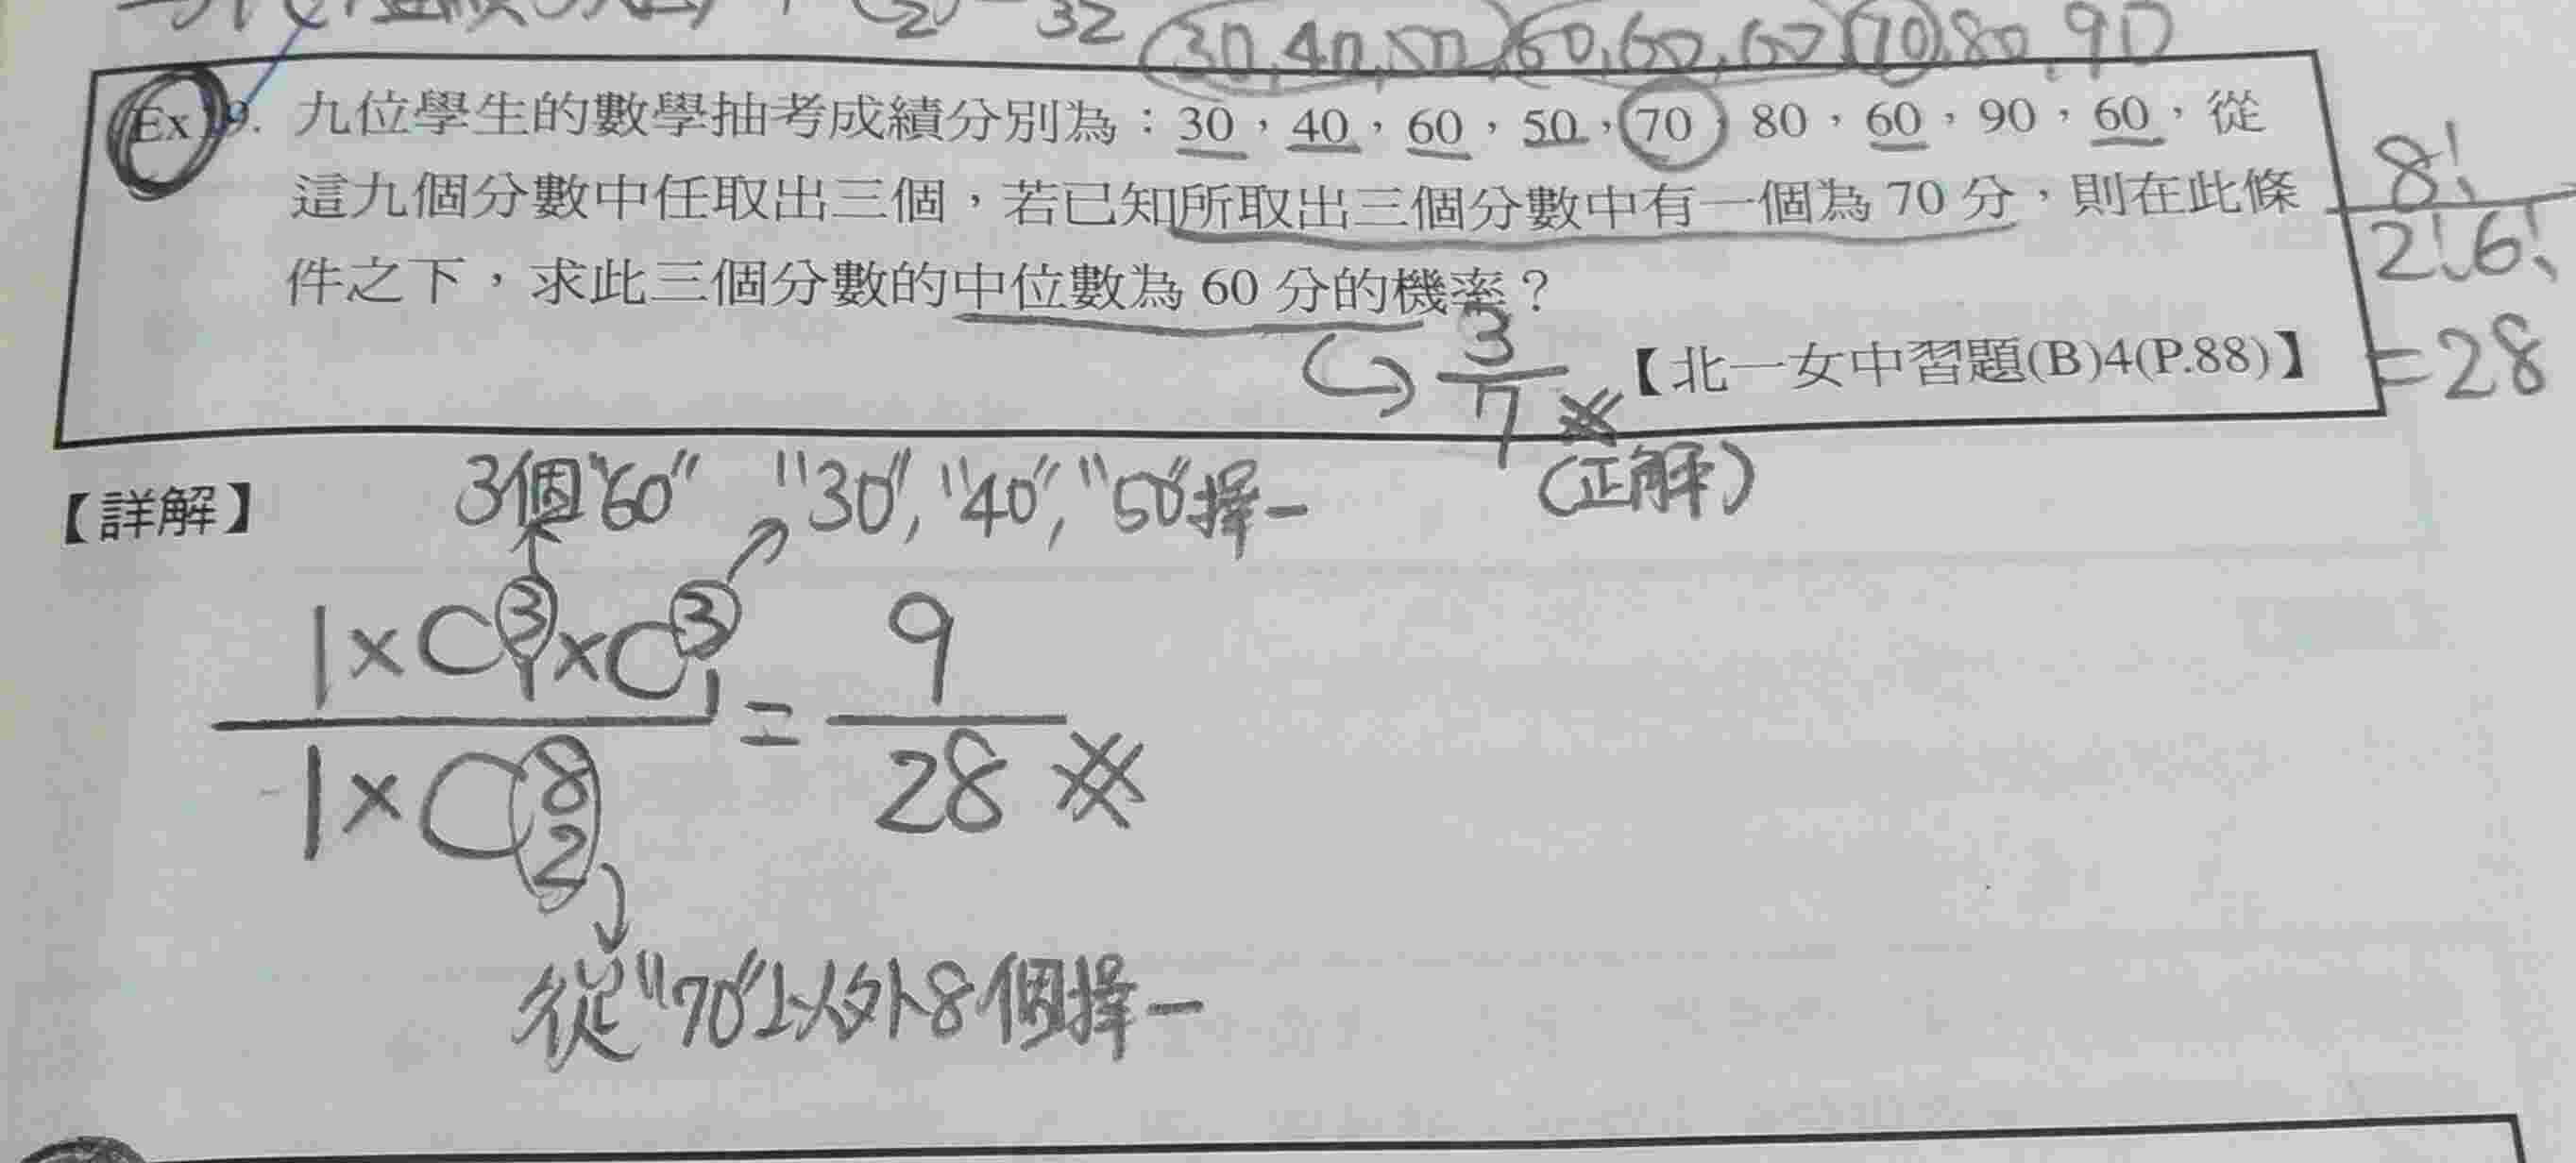 32 30,40,50,60,60,60,70,80,90
Ex19. 九位學生的數學抽考成績分別為：30，40，60，50，70，80，60，90，60，從
這九個分數中任取出三個，若已知所取出三個分數中有一個為 70 分，則在此條
件之下，求此三個分數的中位數為 60 分的機率？
8!/2!6!
=28
3/7 ※
【北一女中習題(B)4(P.88)】
(正解)
【詳解】
3個"60" "30","40","50"擇一
1×C³₁×C³₁ / 1×C⁸₂ = 9/28 ※
從"70"以外8個擇一